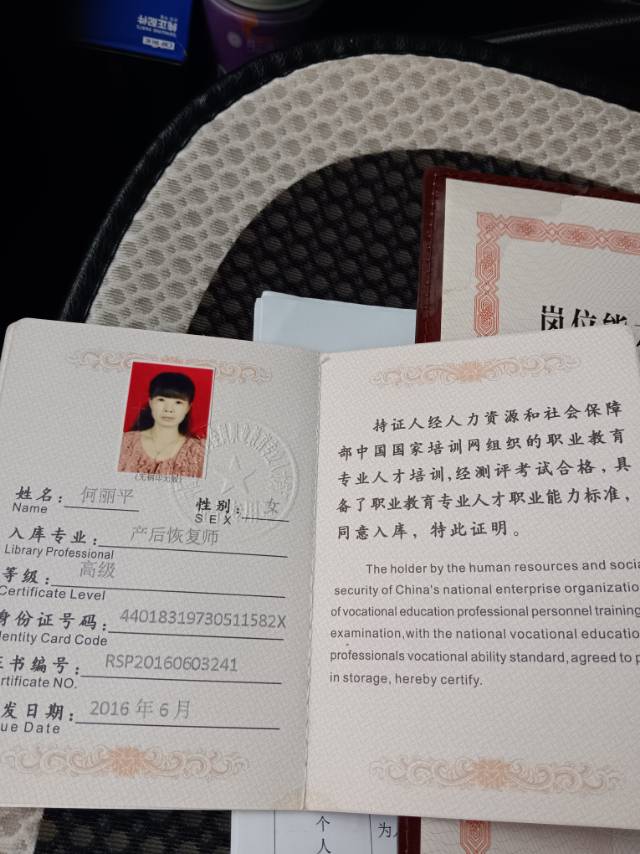 纯正配件
岗位能
(无钢印无效)
姓名: 何丽平
Name
性别: 女
SEX
入库专业: 产后恢复师
Library Professional
等级: 高级
Certificate Level
身份证号码: 44018319730511582X
dentity Card Code
证书编号: RSP20160603241
ertificate NO.
发日期: 2016 年 6 月
ue Date
持证人经人力资源和社会保障
部中国国家培训网组织的职业教育
专业人才培训,经测评考试合格,具
备了职业教育专业人才职业能力标准,
同意入库,特此证明。
The holder by the human resources and socia
security of China's national enterprise organizatio
of vocational education professional personnel training
examination,with the national vocational educatio
professionals vocational ability standard, agreed to p
in storage, hereby certify.
个
人
为